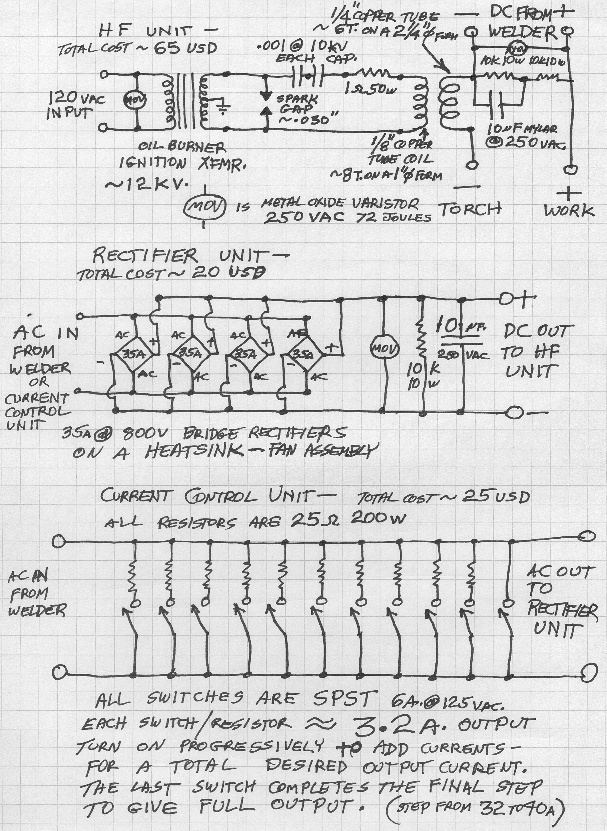 HF UNIT —
TOTAL COST ~ 65 USD
1/4" COPPER TUBE
~ 6T. ON A 2 1/4" Ø FORM
DC FROM
WELDER
- +
.001 @ 10KV
EACH CAP.
MOV
10K 10W 10K 10W
120 VAC
INPUT
MOV
SPARK
GAP
~.030"
1Ω 50W
10NF MYLAR
@ 250 VAC.
OIL BURNER
IGNITION XFMR.
~12KV.
1/8" COPPER
TUBE COIL
~8T. ON A 1" Ø FORM
MOV IS METAL OXIDE VARISTOR
250 VAC 72 JOULES
— TORCH
+ WORK
RECTIFIER UNIT —
TOTAL COST ~ 20 USD
AC IN
FROM
WELDER
OR
CURRENT
CONTROL
UNIT
AC AC AC AC
- 35A + - 35A + - 35A + - 35A +
AC AC AC AC
MOV
10 K
10 W
10 NF.
250 VAC
+
DC OUT
TO HF
UNIT
-
35A @ 800V BRIDGE RECTIFIERS
ON A HEATSINK — FAN ASSEMBLY
CURRENT CONTROL UNIT — TOTAL COST ~ 25 USD
ALL RESISTORS ARE 25Ω 200W
AC IN
FROM
WELDER
AC OUT
TO
RECTIFIER
UNIT
ALL SWITCHES ARE SPST 6A. @ 125 VAC.
EACH SWITCH/RESISTOR ≈ 3.2A. OUTPUT
TURN ON PROGRESSIVELY TO ADD CURRENTS —
FOR A TOTAL DESIRED OUTPUT CURRENT.
THE LAST SWITCH COMPLETES THE FINAL STEP
TO GIVE FULL OUTPUT. (STEP FROM 32 TO 40A)